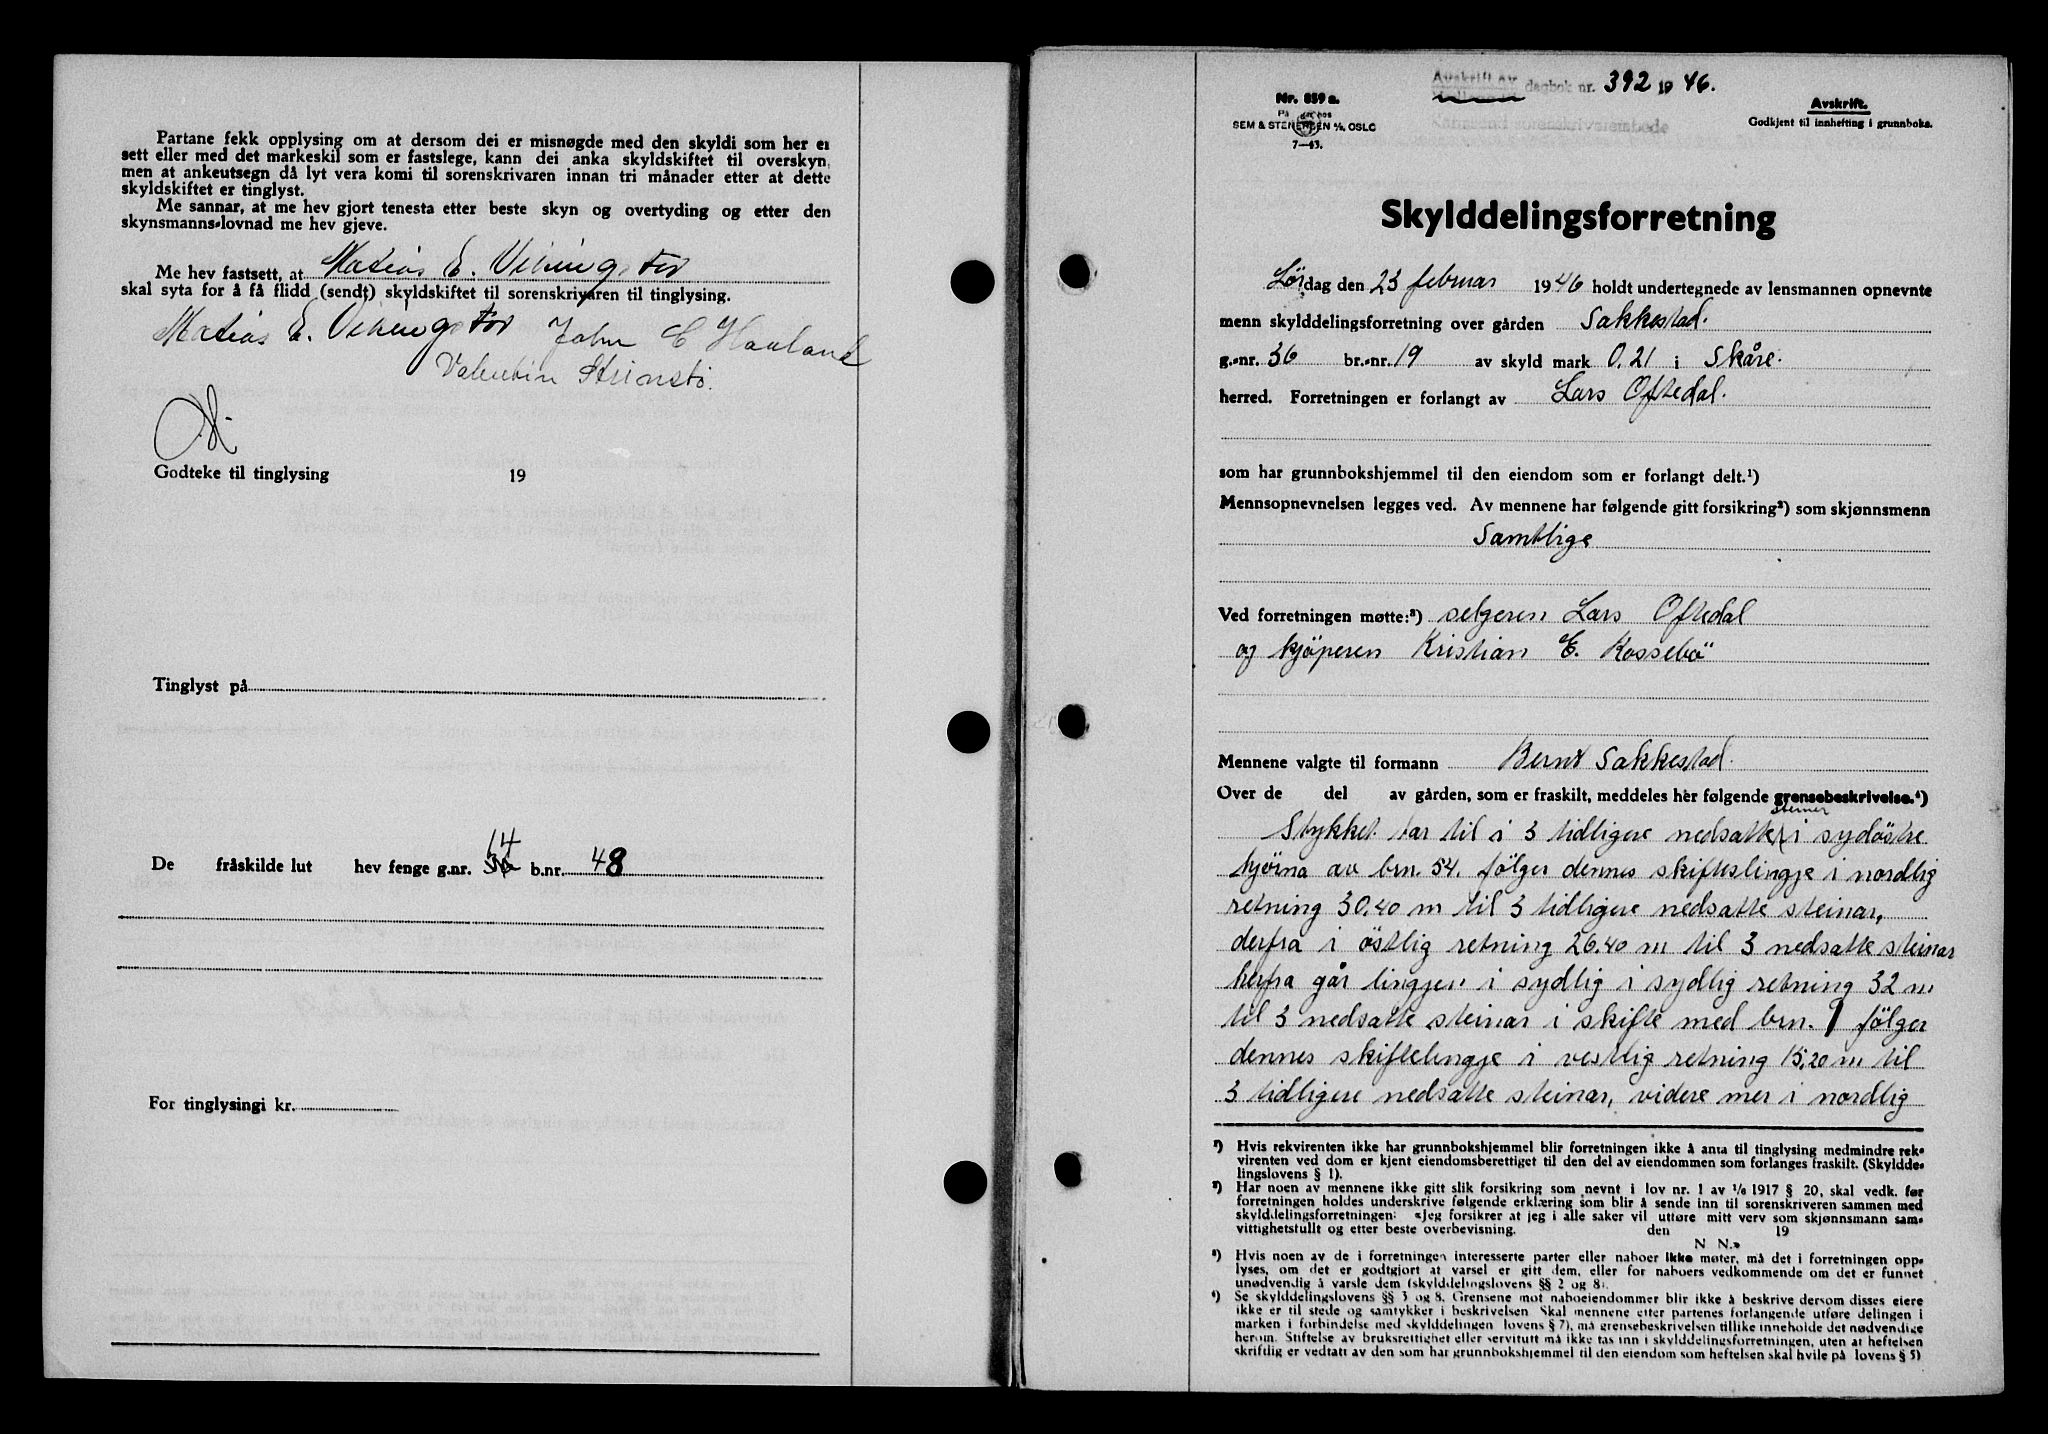 Partane fekk opplysing om at dersom dei er misnøgde med den skyldi som her er
sett eller med det markeskil som er fastslege, kann dei anka skyldskiftet til overskyn,
men at ankeutsegn då lyt vera komi til sorenskrivaren innan tri månader etter at dette
skyldskiftet er tinglyst.
Me sannar, at me hev gjort tenesta etter beste skyn og overtyding og etter den
skynsmanns-lovnad me hev gjeve.
Me hev fastsett, at Matias E. Vikingstad
skal syta for å få flidd (sendt) skyldskiftet til sorenskrivaren til tinglysing.
Matias E. Vikingstad John E Haaland
Valentin Steinsbø.
Godteke til tinglysing 19
Tinglyst på
14
De fråskilde lut hev fenge g.nr. 36 b.nr. 48
For tinglysingi kr.
Avskrift av dagbok nr. 392 1946.
Nr. 859 a.
SEM & STENERSEN A/S, OSLO
7-43.
Avskrift.
Godkjent til innhefting i grunnboka.
Karmsund sorenskriverembede
Skylddelingsforretning
Lørdag den 23 februar 1946 holdt undertegnede av lensmannen opnevnte
menn skylddelingsforretning over gården Sakkestad.
g.-nr. 36 br.-nr. 19 av skyld mark 0.21 i Skåre.
herred. Forretningen er forlangt av Lars Oftedal.
som har grunnbokshjemmel til den eiendom som er forlangt delt.¹)
Mennsopnevnelsen legges ved. Av mennene har følgende gitt forsikring²) som skjønnsmenn
Samtlige
Ved forretningen møtte:³) selgeren Lars Oftedal
og kjøperen Kristian E. Rossebö
Mennene valgte til formann Bernt Sakkestad.
Over de del av gården, som er fraskilt, meddeles her følgende grensebeskrivelse.⁴)
steiner
Stykket tar til i 3 tidligere nedsatte i sydøstre
hjørna av brn. 54. følger dennes skifteslingje i nordlig
retning 30.40 m til 3 tidligere nedsatte steinar,
derfra i østlig retning 26.40 m til 3 nedsatte steinar
herfra går lingjen i sydlig i sydlig retning 32 m
til 3 nedsatte steinar i skifte med brn. 1 følger
dennes skiftelingje i vestlig retning 15,20 m til
3 tidligere nedsatte steinar, videre mer i nordlig
¹) Hvis rekvirenten ikke har grunnbokshjemmel blir forretningen ikke å anta til tinglysing medmindre rek-
virenten ved dom er kjent eiendomsberettiget til den del av eiendommen som forlanges fraskilt. (Skyldde-
lingslovens § 1).
²) Har noen av mennene ikke gitt slik forsikring som nevnt i lov nr. 1 av 1/6 1917 § 20, skal vedk. før
forretningen holdes underskrive følgende erklæring som blir å sende inn til sorenskriveren sammen med
skylddelingsforretningen: «Jeg forsikrer at jeg i alle saker vil utføre mitt verv som skjønnsmann sam-
vittighetsfullt og etter beste overbevisning. den 19
N N.»
³) Hvis noen av de i forretningen interesserte parter eller naboer ikke møter, må det i forretningen opp-
lyses, om det er godtgjort at varsel er gitt dem, eller for naboers vedkommende om det er funnet
unødvendig å varsle dem (skylddelingslovens §§ 2 og 8).
⁴) Se skylddelingslovens §§ 3 og 8. Grensene mot naboeiendommer blir ikke å beskrive dersom disses eiere
ikke er til stede og samtykker i beskrivelsen. Skal mennene etter partenes forlangende utføre delingen i
marken i forbindelse med skylddelingen lovens § 7), må grensebeskrivelsen tillike inneholde det nødvendige
herom. Stiftelse av bruksrettighet eller servitutt må ikke tas inn i skylddelingsforretningen, uten at heftelsen
skriftlig er vedtatt av den som har grunnbokshjemmel til den eiendom som heftelsen skal hvile på lovens § 5)